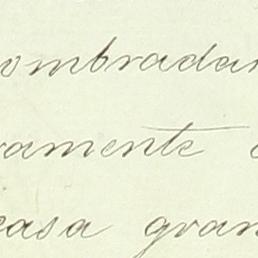 ombradam
ramente
casa gran